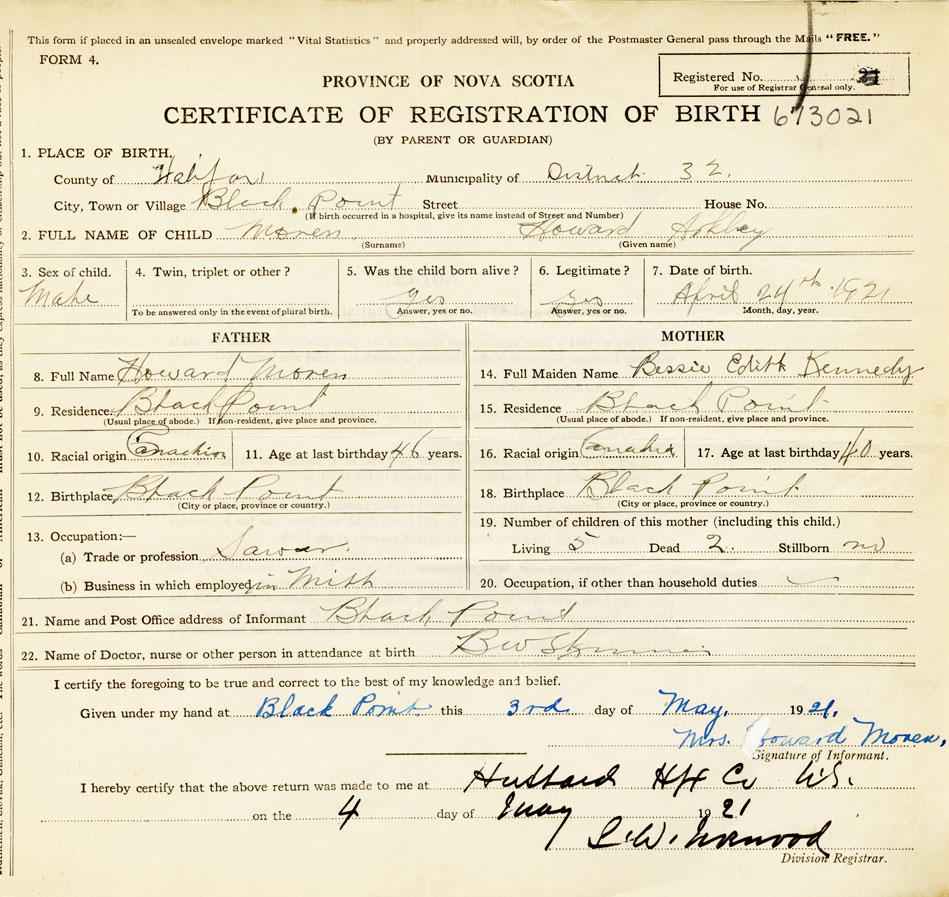 This form if placed in an unsealed envelope marked "Vital Statistics" and properly addressed will, by order of the Postmaster General pass through the Mails "FREE."
FORM 4.
PROVINCE OF NOVA SCOTIA
Registered No.
For use of Registrar General only.
CERTIFICATE OF REGISTRATION OF BIRTH 673021
(BY PARENT OR GUARDIAN)
1. PLACE OF BIRTH,
County of Halifax Municipality of District 32.
City, Town or Village Black Point Street House No.
(If birth occurred in a hospital, give its name instead of Street and Number)
2. FULL NAME OF CHILD Moren Howard Ashley
(Surname) (Given name)
3. Sex of child. 4. Twin, triplet or other? 5. Was the child born alive? 6. Legitimate? 7. Date of birth.
Male Yes Yes April 24th 1921
To be answered only in the event of plural birth. Answer, yes or no. Answer, yes or no. Month, day, year.
FATHER
8. Full Name Howard Moren
9. Residence. Black Point
(Usual place of abode.) If non-resident, give place and province.
10. Racial origin Canadian 11. Age at last birthday 46 years.
12. Birthplace Black Point
(City or place, province or country.)
13. Occupation:—
(a) Trade or profession
(b) Business in which employed in Mill
MOTHER
14. Full Maiden Name Bessie Edith Kennedy
15. Residence Black Point
(Usual place of abode.) If non-resident, give place and province.
16. Racial origin Canadian 17. Age at last birthday 40 years.
18. Birthplace Black Point
(City or place, province or country.)
19. Number of children of this mother (including this child.)
Living 5 Dead 2. Stillborn no
20. Occupation, if other than household duties
21. Name and Post Office address of Informant Black Point
22. Name of Doctor, nurse or other person in attendance at birth B W Skinner
I certify the foregoing to be true and correct to the best of my knowledge and belief.
Given under my hand at Black Point this 3rd day of May, 1921,
Mrs. Howard Moren,
Signature of Informant.
I hereby certify that the above return was made to me at Hubbard Hfx Co N.S.
on the 4 day of May 1921
Norwood
Division Registrar.